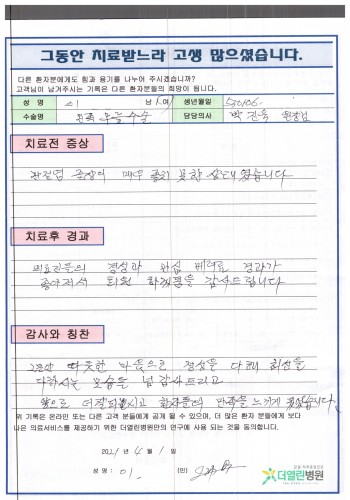 그동안 치료받느라 고생 많으셨습니다.
다른 환자분에게도 힘과 용기를 나누어 주시겠습니까?
고객님이 남겨주시는 기록은 다른 환자분들의 희망이 됩니다.
성 명 이 남 / 여 생년월일
수술명 왼쪽 수술 담당의사 박진욱 원장님
치료전 증상
관절염 증상이 매우 좋지 못한 상태였습니다
치료후 경과
의료진들의 정성과 관심 배려로 경과가
좋아져서 퇴원 하게됨을 감사드립니다
감사와 칭찬
그동안 따뜻한 마음으로 정성을 다해 최선을
다하시는 모습들 넘 감사드리고
앞으로 더 환자들이 만족을 느끼게
위 기록은 온라인 또는 다른 고객 분들에게 공개 될 수 있으며, 더 많은 환자 분들에게 보다
나은 의료서비스를 제공하기 위한 더열린병원만의 연구에 사용 되는 것에 동의합니다.
2021 년 4 월 1 일
성 명 : 이. (인)
관절·척추중점진료
더열린병원